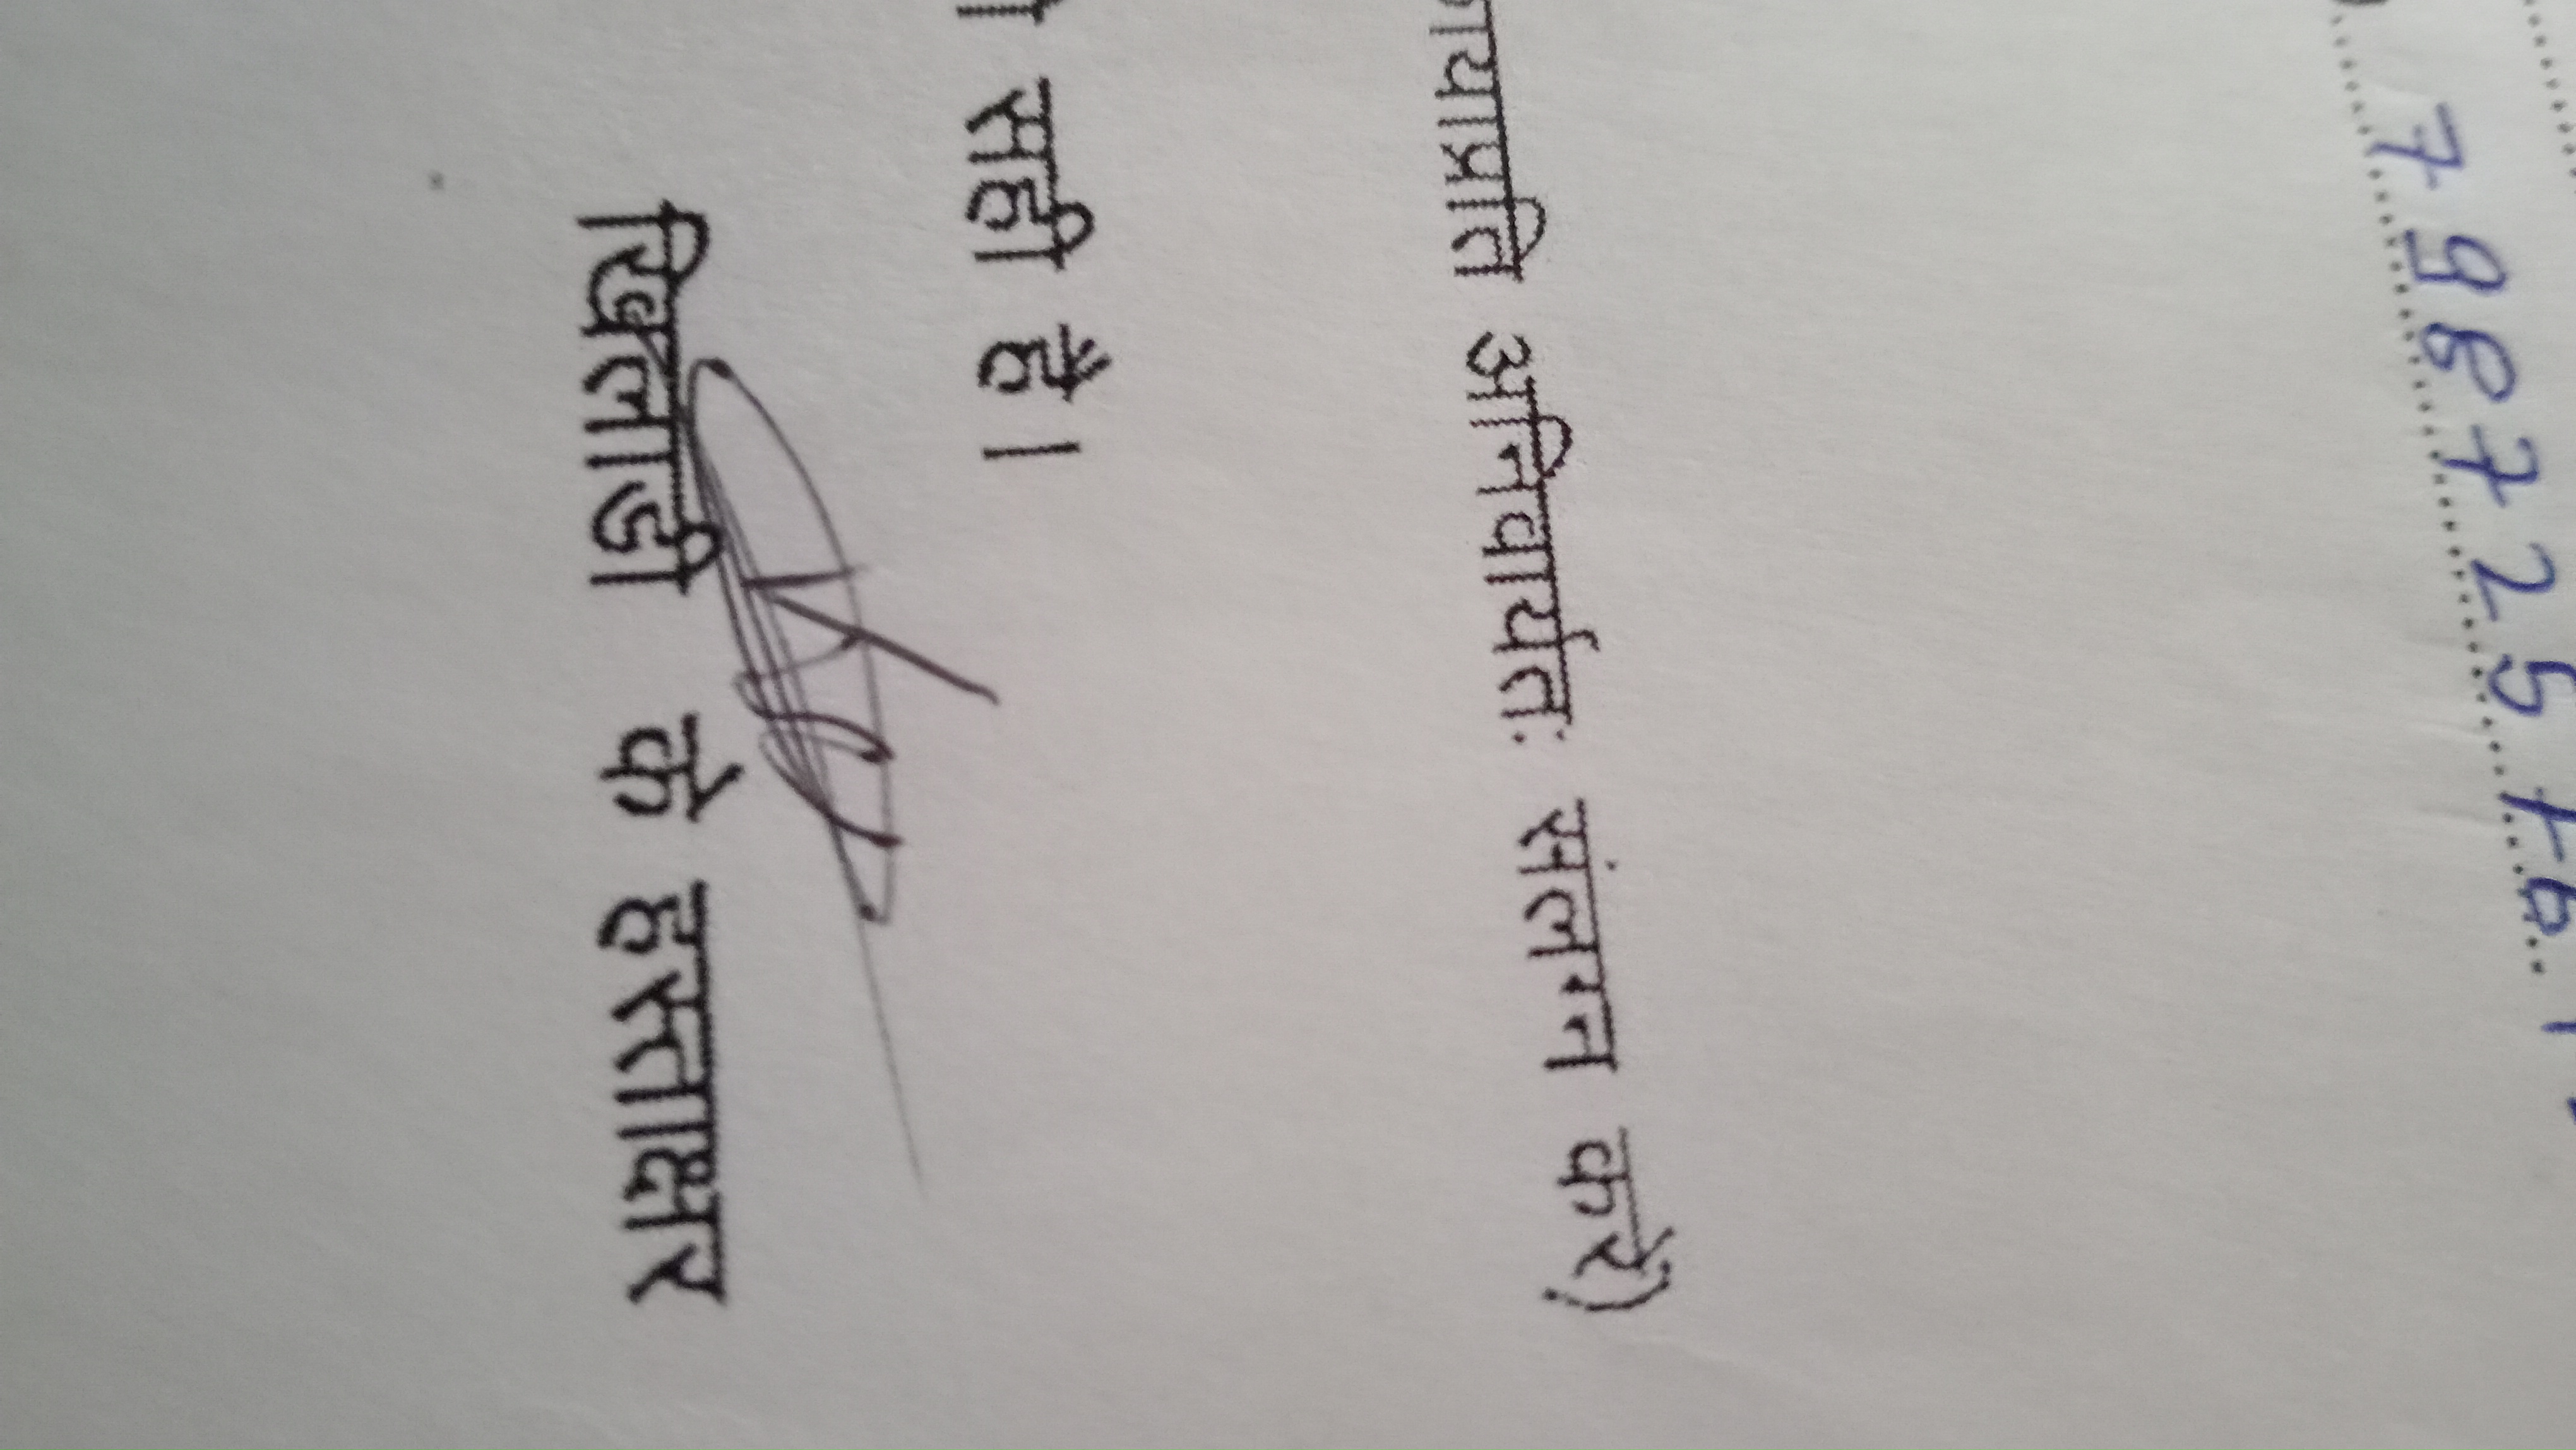 7987725
छायाप्रति अनिवार्यतः संलग्न करे)
सही है।
खिलाडी के हस्ताक्षर